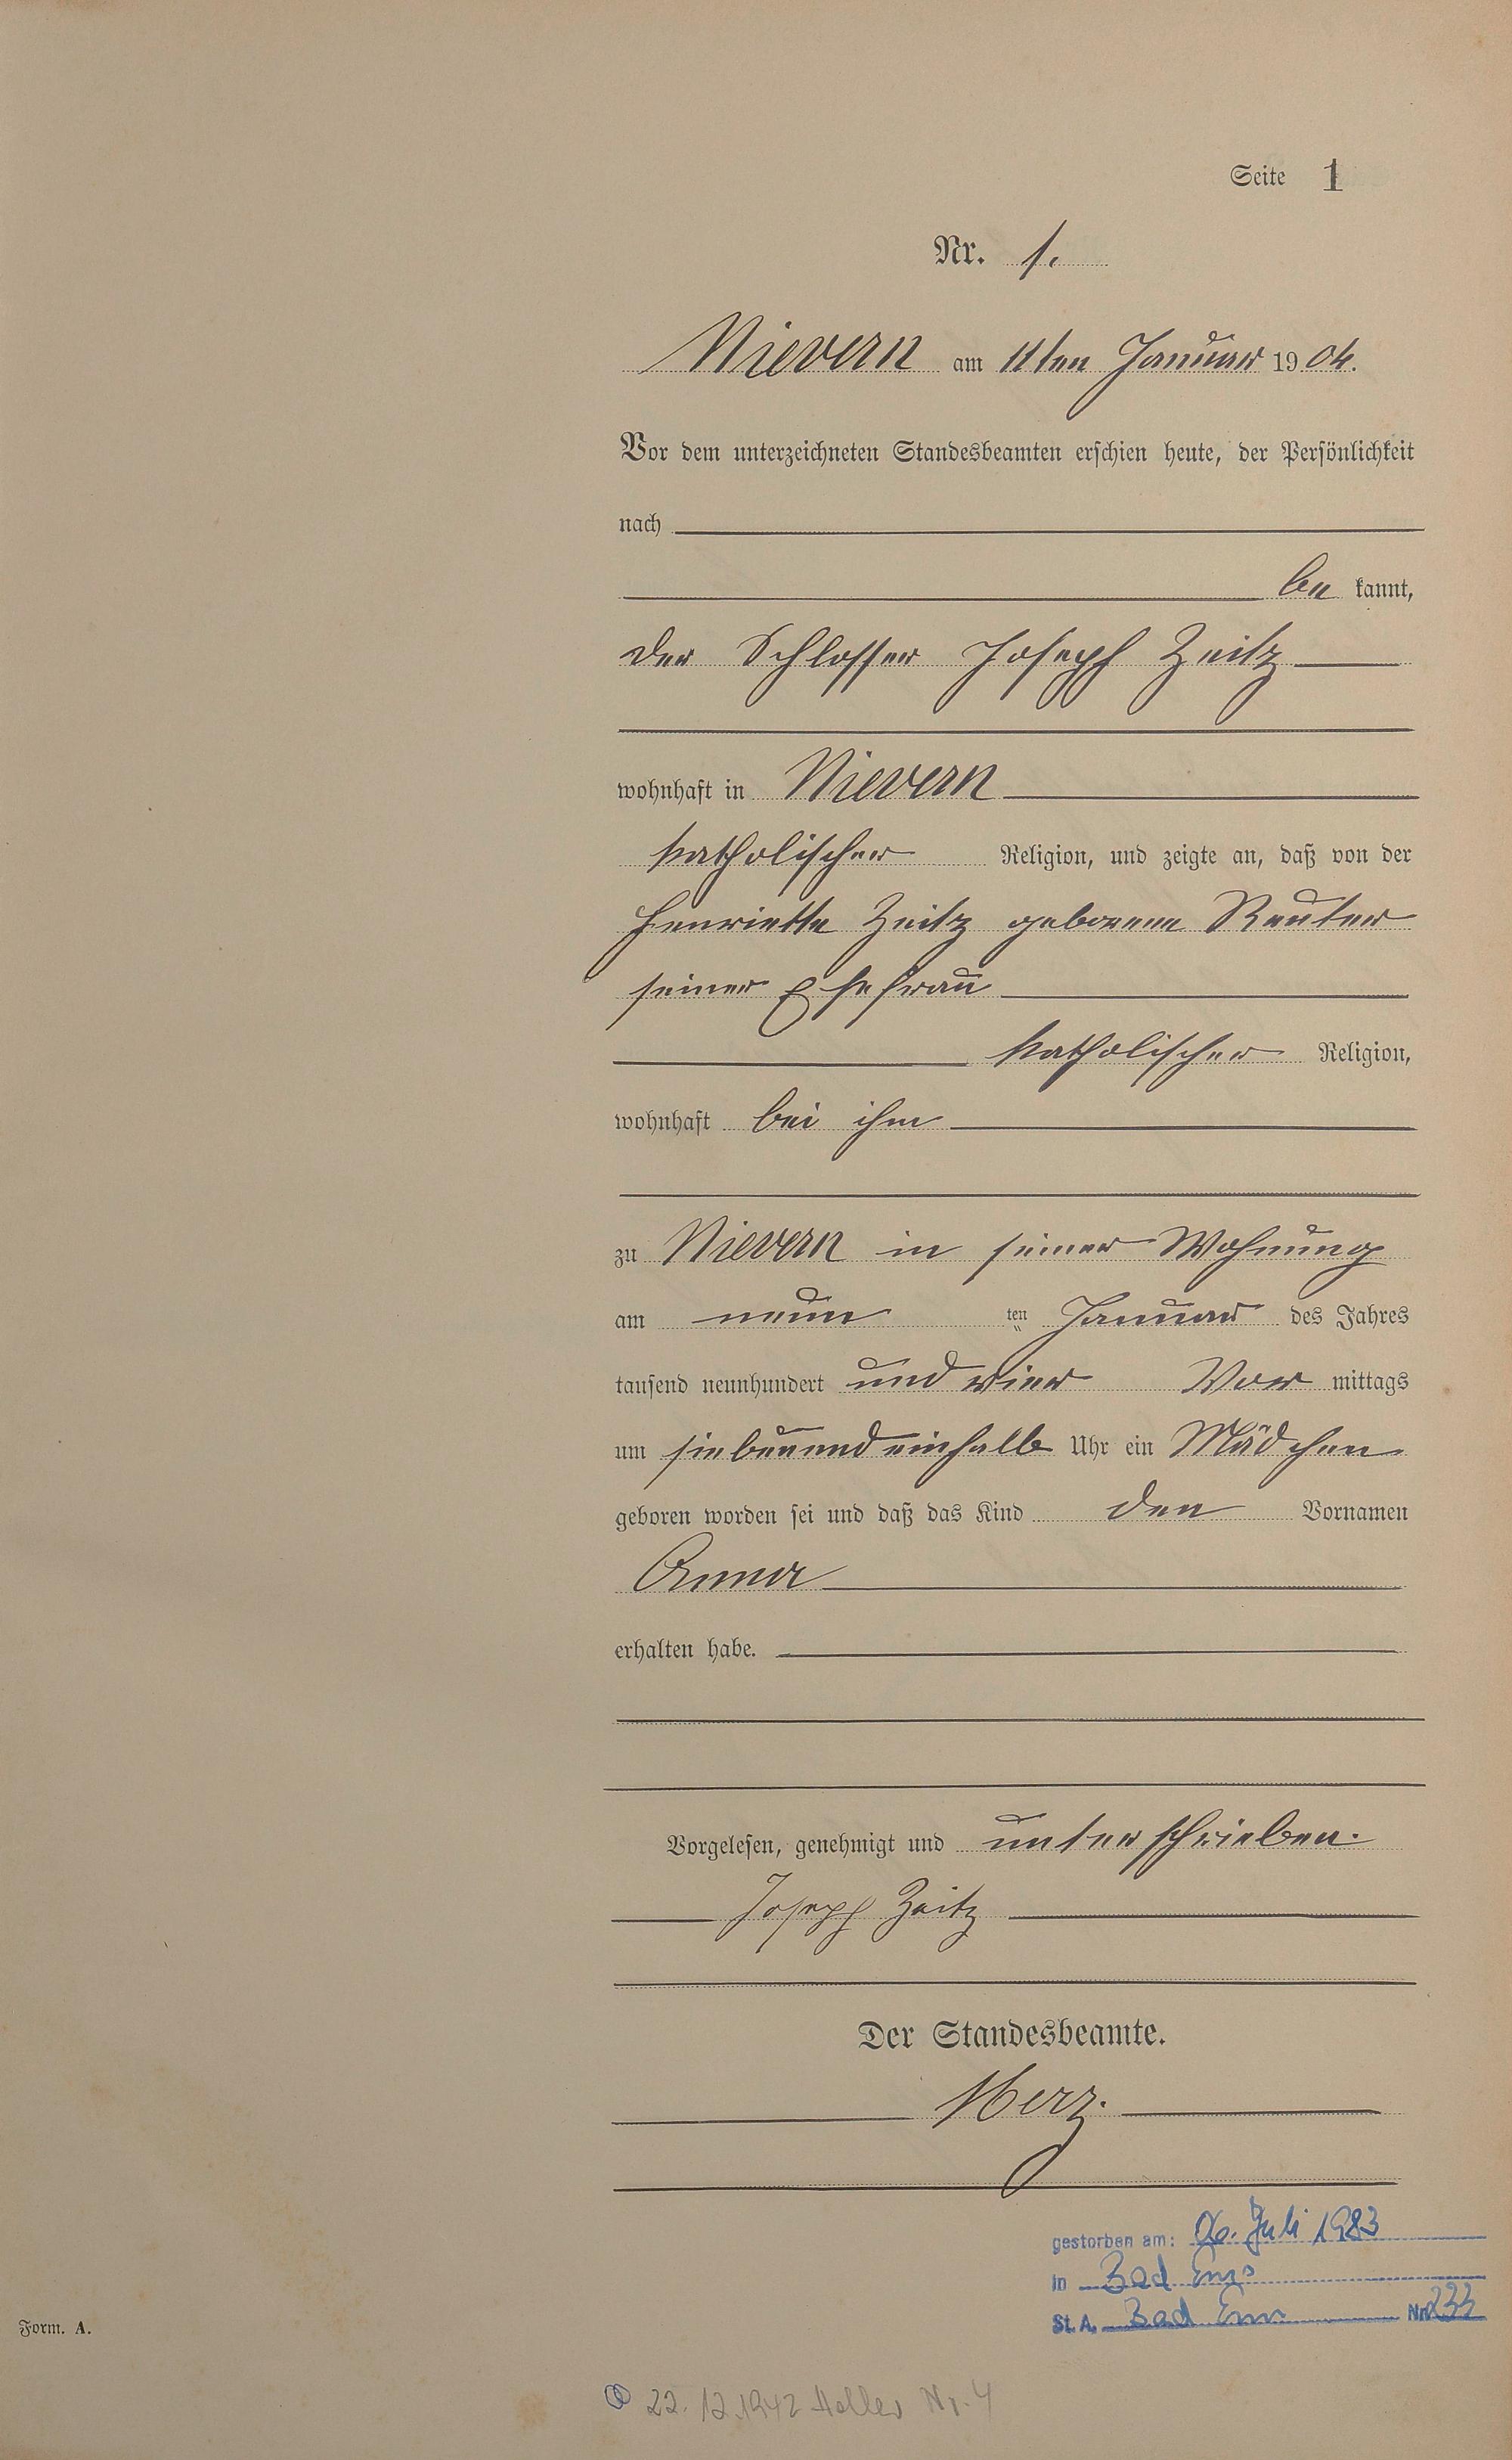 Seite 1
Nr. 1.
Nievern am 11ten Januar 1904.
Vor dem unterzeichneten Standesbeamten erschien heute, der Persönlichkeit
nach
be kannt,
der Schlosser Joseph Zeitz
wohnhaft in Nievern
katholischer Religion, und zeigte an, daß von der
Henriette Zeitz geborene Reuter
seiner Ehefrau
katholischer Religion,
wohnhaft bei ihm
zu Nievern in seiner Wohnung
am neun ten Januar des Jahres
tausend neunhundert und vier Vor mittags
um siebenundeinhalb Uhr ein Mädchen
geboren worden sei und daß das Kind den Vornamen
Anna
erhalten habe.
Vorgelesen, genehmigt und unterschrieben.
Joseph Zeitz
Der Standesbeamte.
Merz.
gestorben am: 06. Juli 1983
in Bad Ems
St. A. Bad Ems Nr. 233
Form. A.
22.12.1942 Nr. 4